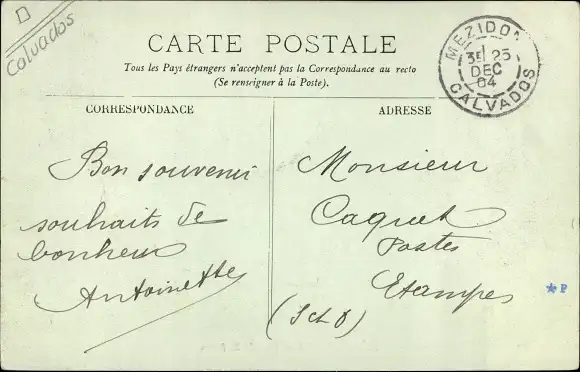 Calvados
CARTE POSTALE
Tous les Pays étrangers n'acceptent pas la Correspondance au recto
(Se renseigner à la Poste).
MEZIDON
3E 25
DEC
04
CALVADOS
CORRESPONDANCE
Bon souvenir
souhaits de
bonheur
Antoinette
ADRESSE
Monsieur
Caquet
Postes
Etampes
(S et O)
★P